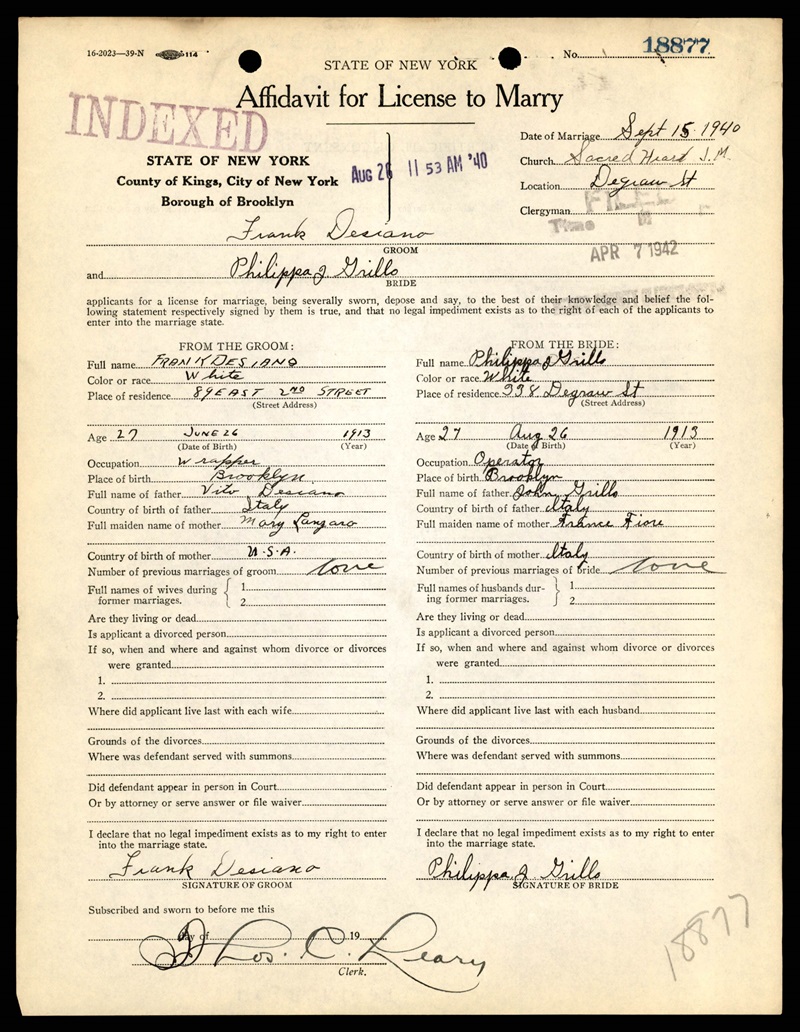 16-2023—39-N 114
No. 18877
STATE OF NEW YORK
Affidavit for License to Marry
INDEXED
STATE OF NEW YORK
County of Kings, City of New York
Borough of Brooklyn
AUG 26 11 53 AM '40
Date of Marriage Sept 15 1940
Church Sacred Heart J.M.
Location Degraw St
Clergyman
FILED
Time M
APR 7 1942
Frank Desiano
GROOM
and Philippa J. Grillo
BRIDE
applicants for a license for marriage, being severally sworn, depose and say, to the best of their knowledge and belief the fol-
lowing statement respectively signed by them is true, and that no legal impediment exists as to the right of each of the applicants to
enter into the marriage state.
FROM THE GROOM:
Full name FRANK DESIANO
Color or race White
Place of residence 89 EAST 2ND STREET
(Street Address)
Age 27 JUNE 26 1913
(Date of Birth) (Year)
Occupation Wrapper
Place of birth Brooklyn.
Full name of father Vito Desiano
Country of birth of father Italy
Full maiden name of mother Mary Lanzaro
Country of birth of mother U.S.A.
Number of previous marriages of groom none
Full names of wives during former marriages. { 1
2
Are they living or dead
Is applicant a divorced person
If so, when and where and against whom divorce or divorces
were granted
1.
2.
Where did applicant live last with each wife
Grounds of the divorces
Where was defendant served with summons
Did defendant appear in person in Court
Or by attorney or serve answer or file waiver
I declare that no legal impediment exists as to my right to enter
into the marriage state.
Frank Desiano
SIGNATURE OF GROOM
FROM THE BRIDE:
Full name Philippa J Grillo
Color or race White
Place of residence 338 Degraw St
(Street Address)
Age 27 Aug 26 1913
(Date of Birth) (Year)
Occupation Operator
Place of birth Brooklyn
Full name of father John Grillo
Country of birth of father Italy
Full maiden name of mother France Fiore
Country of birth of mother Italy
Number of previous marriages of bride none
Full names of husbands dur-ing former marriages. } 1
2
Are they living or dead
Is applicant a divorced person
If so, when and where and against whom divorce or divorces
were granted
1.
2.
Where did applicant live last with each husband
Grounds of the divorces
Where was defendant served with summons
Did defendant appear in person in Court
Or by attorney or serve answer or file waiver
I declare that no legal impediment exists as to my right to enter
into the marriage state.
Philippa J. Grillo
SIGNATURE OF BRIDE
Subscribed and sworn to before me this
day of 19
Thos. C. Leary
Clerk.
18877